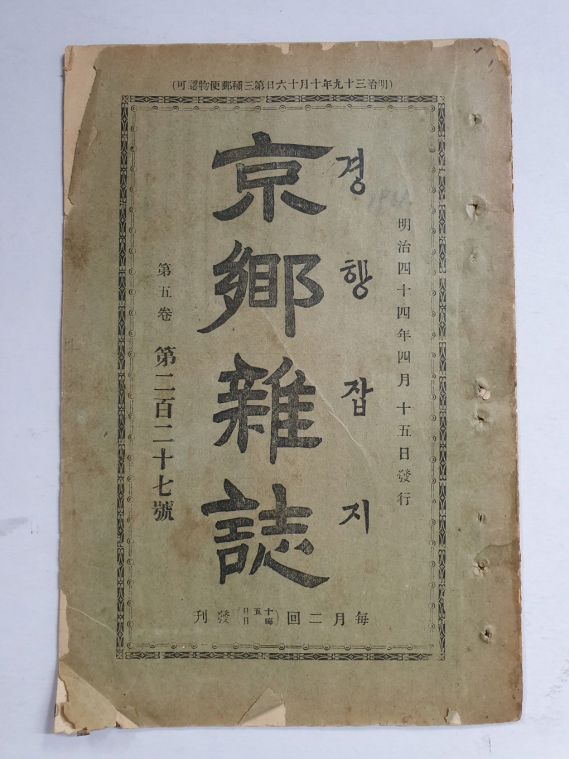 (明治三十九年十月十六日第三種郵便物認可)
明治四十四年四月十五日發行
경향잡지
京鄉雜誌
第五卷 第二百二十七號
每月二回 十五日 晦日 發刊